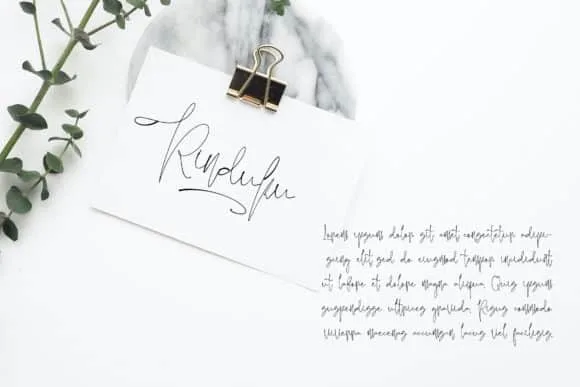 Rinduku
Lorem ipsum dolor sit amet consectetur adipi-
scing elit sed do eiusmod tempor incididunt
ut labore et dolore magna aliqua. Quis ipsum
suspendisse ultrices gravida. Risus commodo
viverra maecenas accumsan lacus vel facilisis.